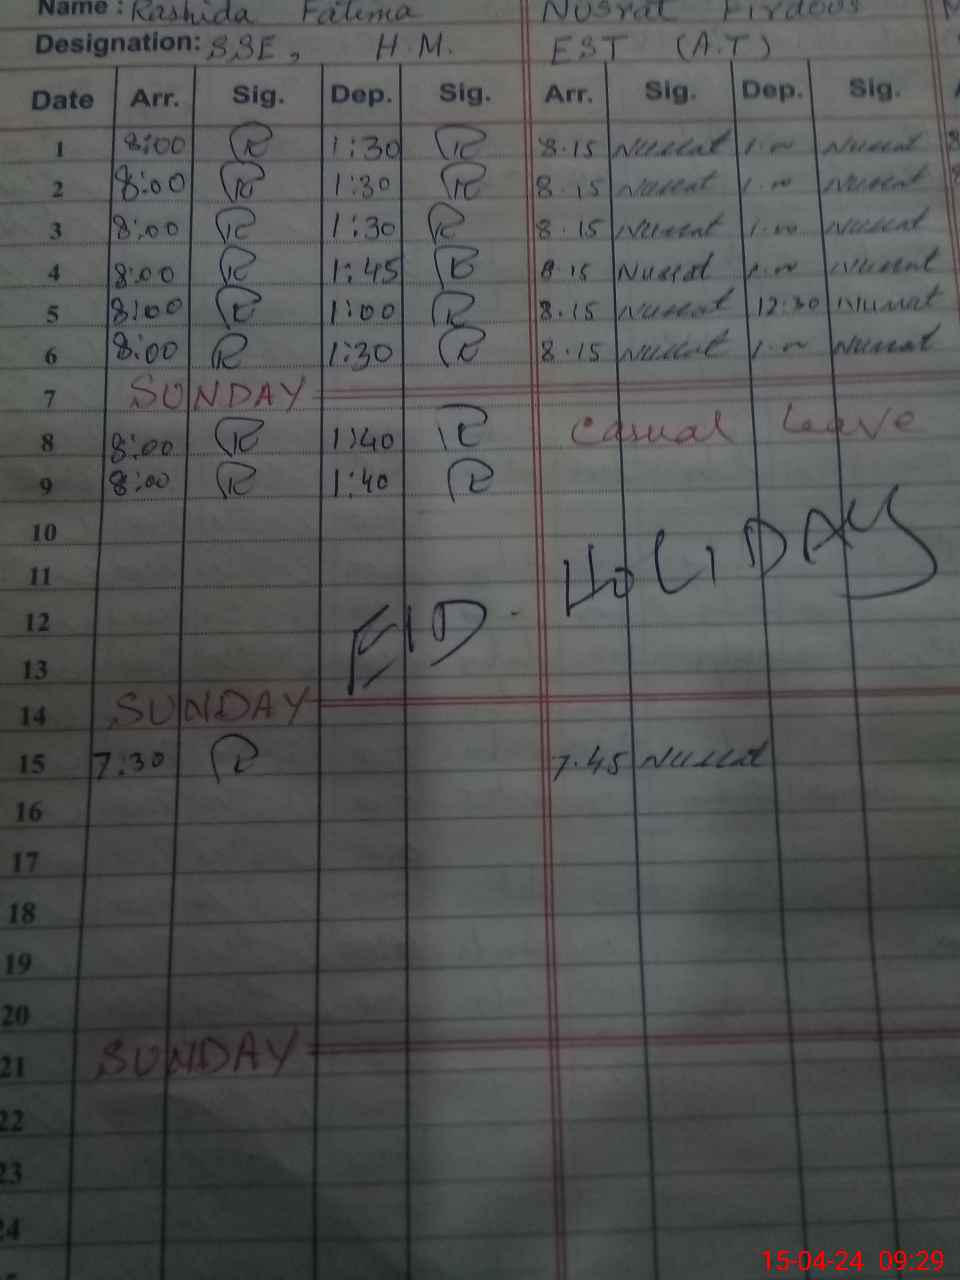 Name : Rashida Fatima Nusrat Firdous
Designation: SSE, H.M. EST (A.T)
Date Arr. Sig. Dep. Sig. Arr. Sig. Dep. Sig.
1 8:00 R 1:30 R 8.15 Nusrat 1.00 Nusrat
2 8:00 R 1:30 R 8.15 Nusrat 1.00 Nusrat
3 8:00 R 1:30 R 8.15 Nusrat 1.00 Nusrat
4 8:00 R 1:45 R 8.15 Nusrat 1.00 Nusrat
5 8:00 R 1:00 R 8.15 Nusrat 12:30 Nusrat
6 8:00 R 1:30 R 8.15 Nusrat 1.00 Nusrat
7 SUNDAY
8 8:00 R 1:40 R Casual Leave
9 8:00 R 1:40 R
10
11
12 EID. HOLIDAY
13
14 SUNDAY
15 7:30 R 7.45 Nusrat
16
17
18
19
20
21 SUNDAY
22
23
24
15-04-24 09:29